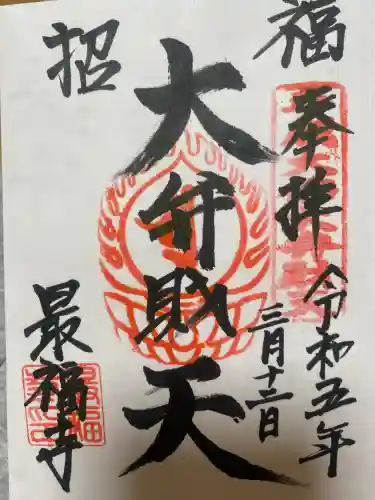 福
招
奉拝
令和五年
三月十二日
大弁財天
最福寺